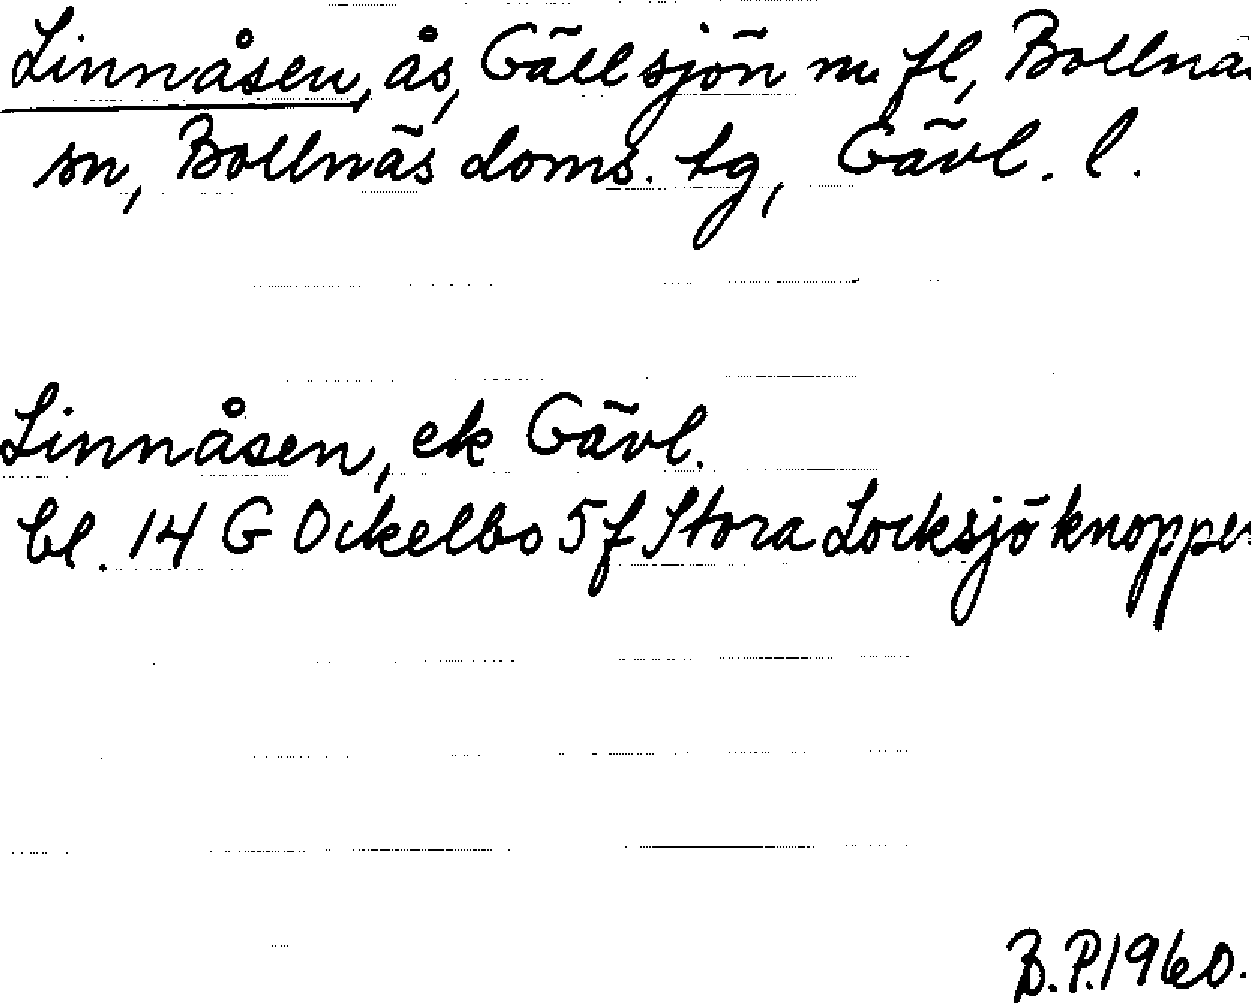 Linnåsen, ås, Gällsjön m. fl, Bollnäs
sn, Bollnäs doms. tg, Gävl. l.
Linnåsen, ek Gävl.
bl. 14 G Ockelbo 5 f Stora Locksjöknoppen
B.P. 1960.